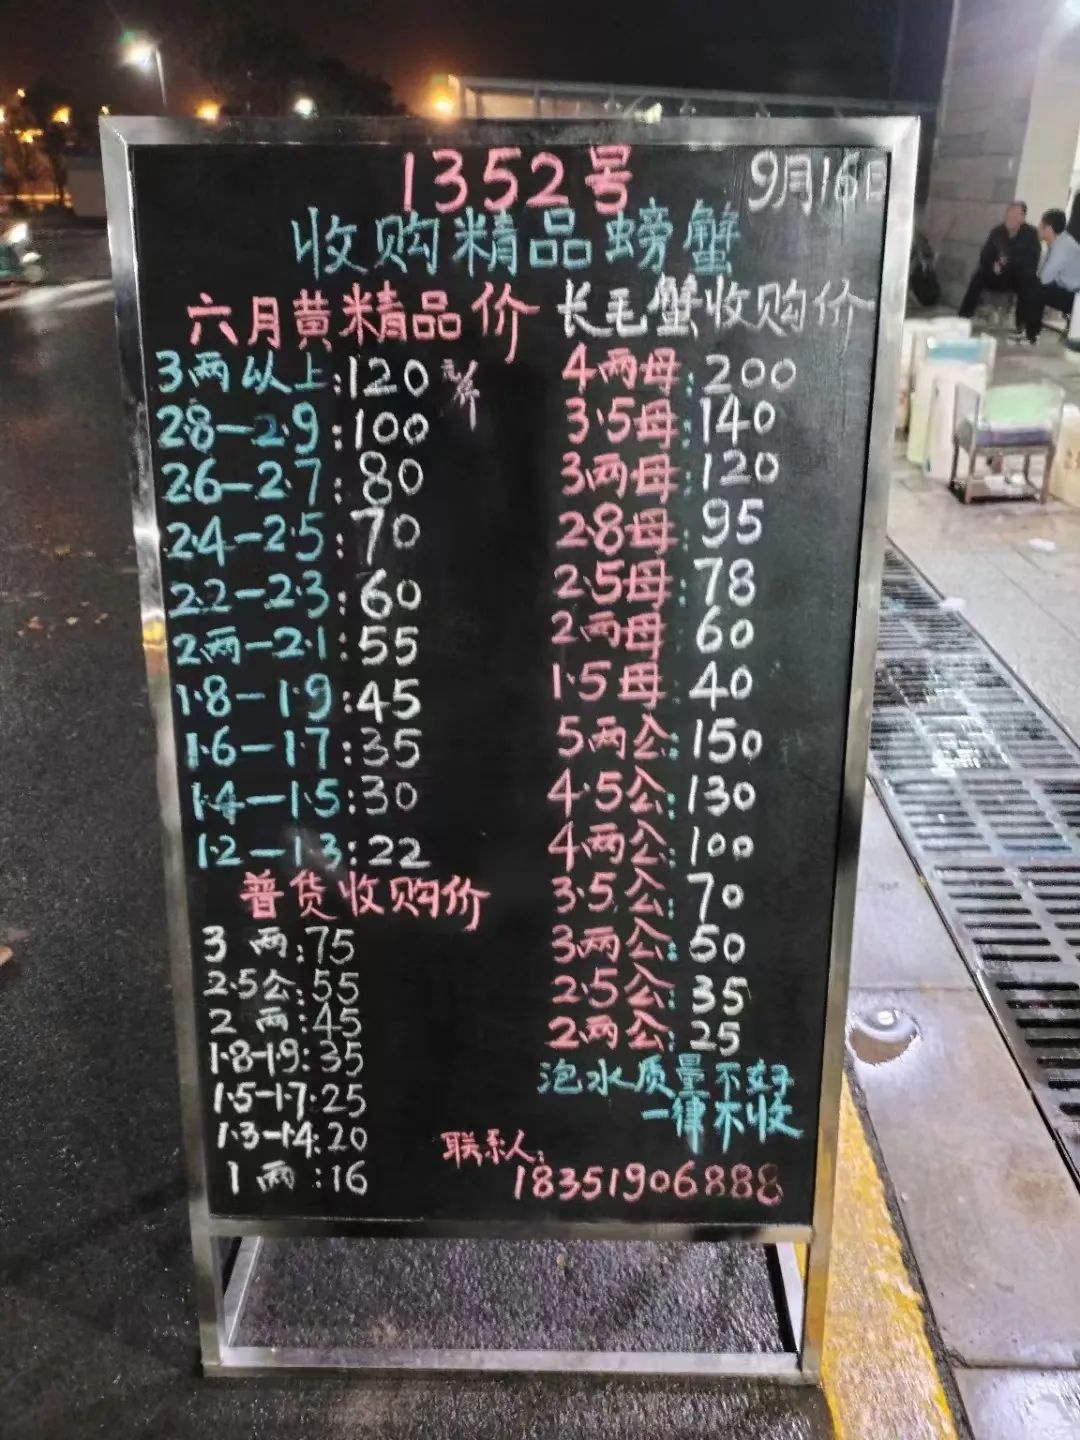 1352号
9月16日
收购精品螃蟹
六月黄精品价
3两以上:120元/斤
2.8—2.9:100
2.6—2.7:80
2.4—2.5:70
2.2—2.3:60
2两—2.1:55
1.8—1.9:45
1.6—1.7:35
1.4—1.5:30
1.2—1.3:22
普货收购价
3两:75
2.5公:55
2两:45
1.8-1.9:35
1.5-1.7:25
1.3-1.4:20
1两:16
长毛蟹收购价
4两母:200
3.5母:140
3两母:120
2.8母:95
2.5母:78
2两母:60
1.5母:40
5两公:150
4.5公:130
4两公:100
3.5公:70
3两公:50
2.5公:35
2两公:25
泡水质量不好
一律不收
联系人:
18351906888